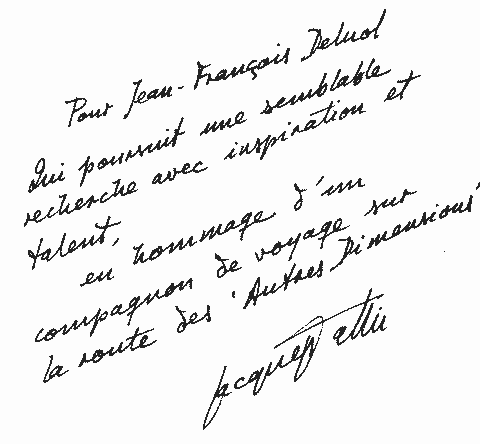 Pour Jean-François Deluol
Qui poursuit une semblable
recherche avec inspiration et
talent,
en hommage d'un
compagnon de voyage sur
la route des 'Autres Dimensions'
Jacques